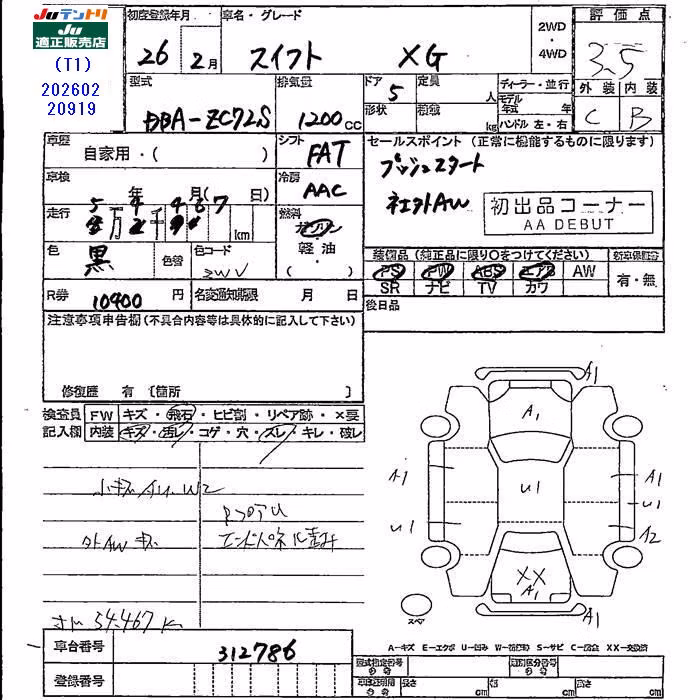 Juテントリ
Ju
適正販売店
(T1)
202602
20919
初度登録年月
車名・グレード
26 年 2月 スイフト XG
2WD
・
4WD
評価点
3.5
外装 内装
C B
型式 排気量 ドア 定員 ディーラー・並行
DBA-ZC72S 1200cc 5 人
形状 積載 kg
モデル年式 年
ハンドル 左・右
車歴 自家用・( )
シフト FAT
セールスポイント (正常に機能するものに限ります)
プッシュスタート
社外AW
初出品コーナー
AA DEBUT
車検 年 月( 日)
冷房 AAC
走行 万 千 km
燃料 ガソリン
軽油
( )
色 黒 色替 色コード ZWV
装備品 (純正品に限り○をつけてください) 新車保証書
PS PW ABS エアB AW 有・無
SR ナビ TV カワ
R券 10400円 名変通知期限 月 日
後日品
注意事項申告欄(不具合内容等は具体的に記入して下さい)
修復歴 有 〔箇所 〕
検査員 FW キズ・飛石・ヒビ割・リペア跡・×要
記入欄 内装 キズ・汚レ・コゲ・穴・スレ・キレ・破レ
小キズ W2
外AW キズ
54.467 K
A1
A1
A1 A1
U1
U1
U1 A2
XX
A1
A1
スペア
A-キズ E-エクボ U-凹み W-S-サビ C-XX-交換済
車台番号 312786
登録番号
型式指定番号 類別区分番号
長さ cm 幅 cm 高さ cm